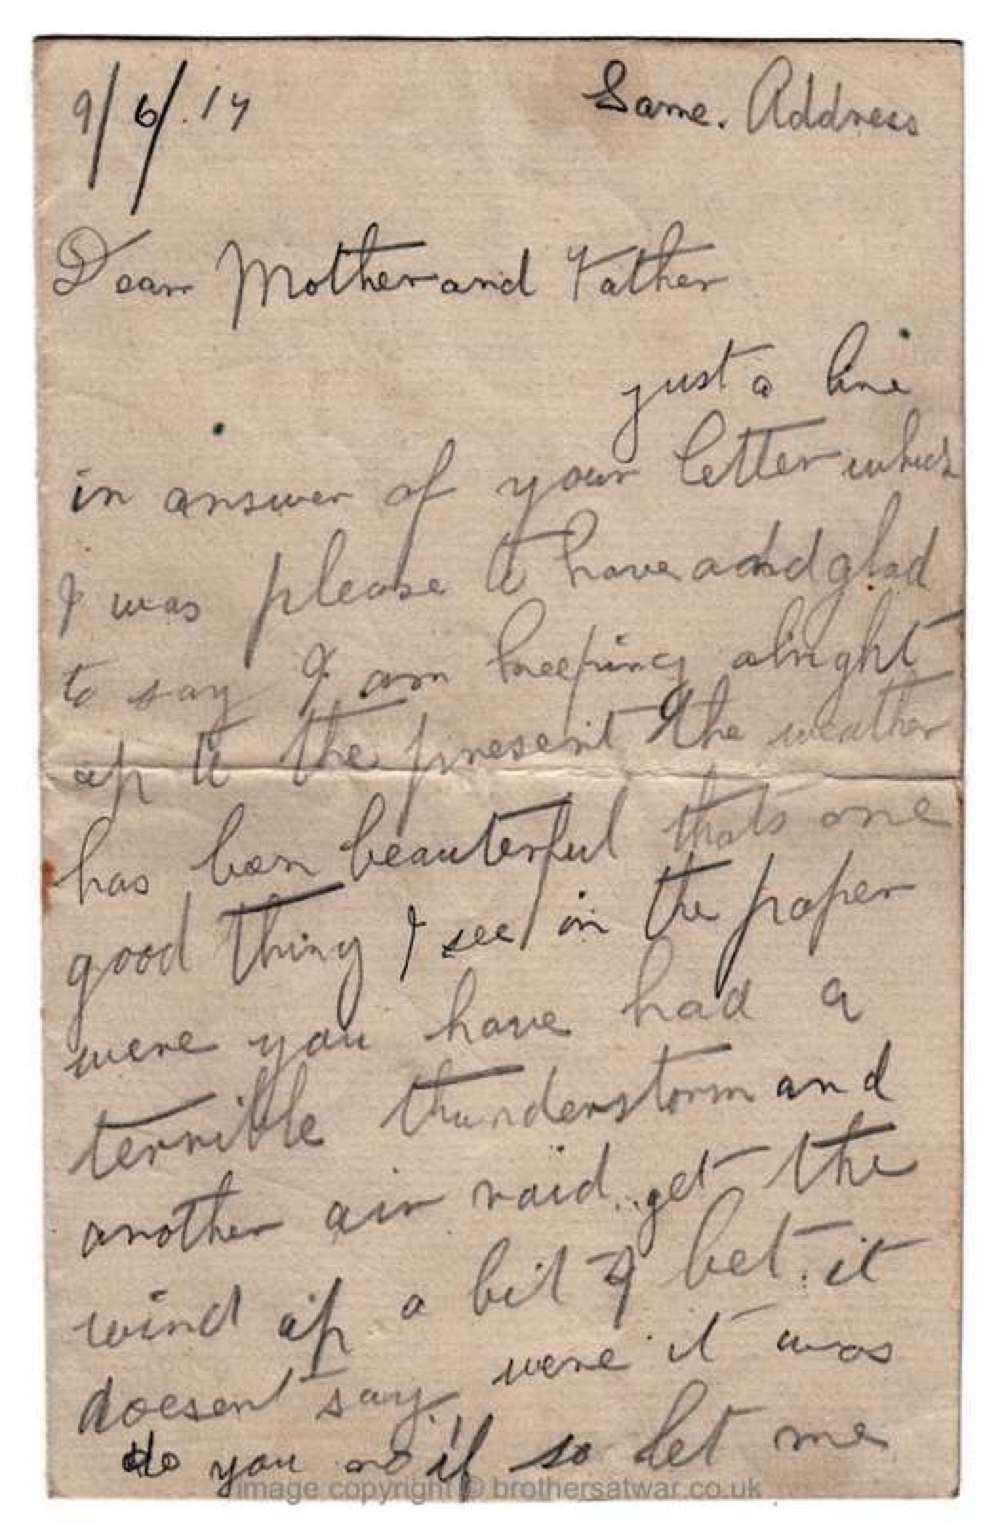 9/6/.17 Same. Address
Dear Mother and Father
just a line
in answer of your letter which
I was please to have and glad
to say I am keeping alright
up to the present the weather
has been beauterful thats one
good thing I see in the paper
were you have had a
terrible thunderstorm and
another air raid. get the
wind up a bit I bet. it
doesent say were it was
do you no if so let me
image copyright © brothersatwar.co.uk